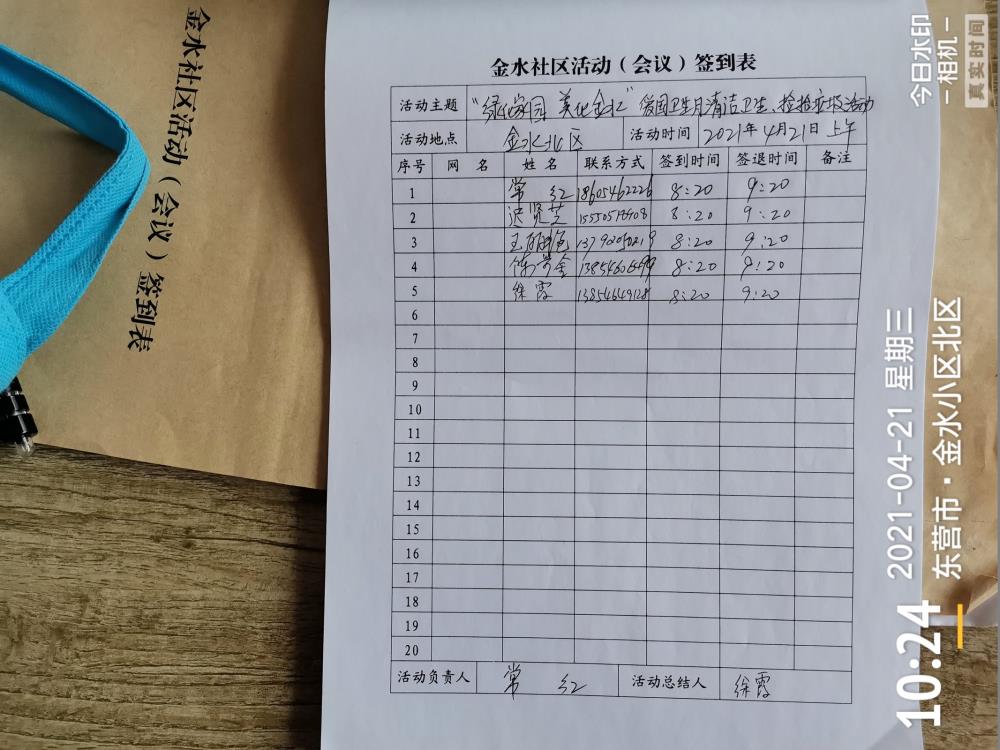 金水社区活动（会议）签到表
金水社区活动（会议）签到表
活动主题 "绿化家园 美化金水" 爱国卫生月清洁卫生、捡拾垃圾活动
活动地点 金水北区 活动时间 2021年4月21日上午
序号 网 名 姓 名 联系方式 签到时间 签退时间 备注
1 常 红 18605462226 8:20 9:20
2 贤芝 8:20 9:20
3 王 8:20 9:20
4 8:20 9:20
5 徐霞 13854649128 8:20 9:20
6
7
8
9
10
11
12
13
14
15
16
17
18
19
20
活动负责人 常 红 活动总结人 徐霞
今日水印
-相机-
真实时间
10:24 2021-04-21 星期三
东营市·金水小区北区